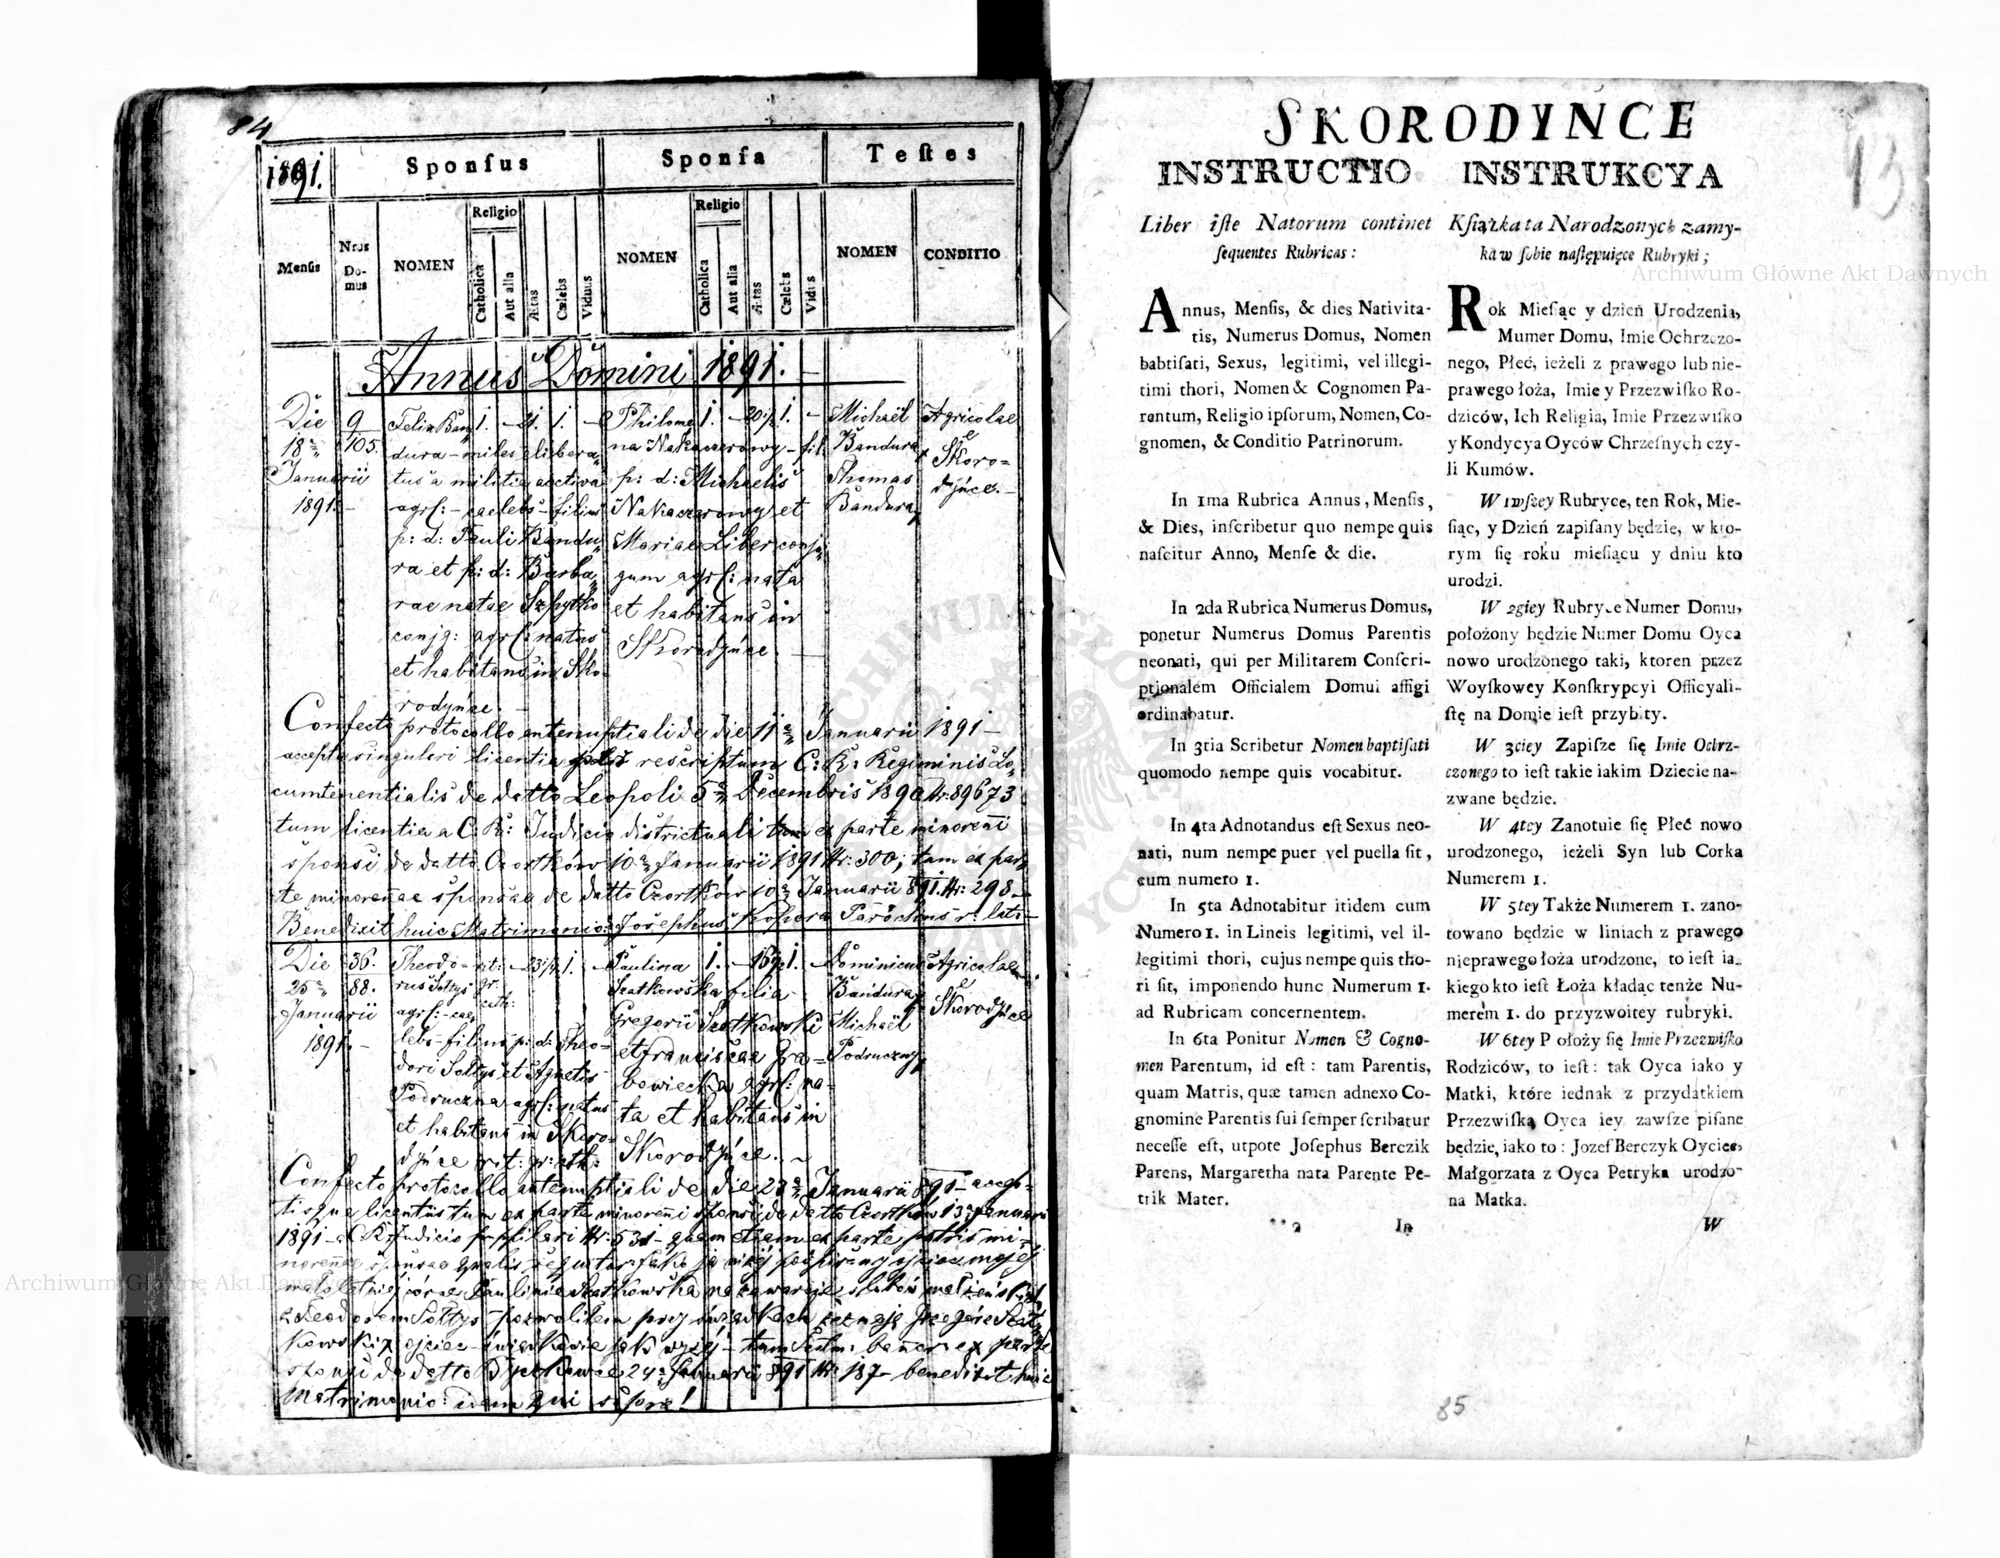 84
1891.
Sponſus
Sponſa
Teſtes
Menſis
Nrus Do- mus
NOMEN
Religio
Catholica
Aut alia
Ætas
Cælebs
Viduus
NOMEN
Religio
Catholica
Aut alia
Ætas
Cælebs
Vidua
NOMEN
CONDITIO
Annus Domini 1891.
Die
18
Januarii
1891.
9
105.
Felix Ban
dura – miles libera
tus a militia activa
agrl: – caelebs – filius
p: d: Pauli Bandu
ra et p: d: Barba
rae natae Szpytko
conjg: agrl: natus
et habitans in Sko
rodyńce.
1. – 21. 1. –
Philome
na Nakaczorowy – fil
p: d: Michaelis
Nakaczorowy et
Mariae Liber conju
gum agrl: nata
et habitans in
Skorodyńce.
Michaël
Bandura
Thomas
Bandura
Agricolae
Skoro=
dyńce.
Confecto protocollo antenuptiali de die 11 Januarii 1891 –
accepta singulari licentia rescriptum C: R: Regiminis Lo
cumtenentialis de datto Leopoli 5 Decembris 1890 Nr: 89673
tum licentia a C. R: Judicio districtuali tum ex parte minorenni
sponsi de datto Czortków 10 Januarii 1891 Nr: 300; tam ex par
te minorenae sponsae de datto Czortków 10 Januarii 891. Nr: 298 –
Benedixit huic Matrimonio: Josephus Kopera Parochus r: lati –
Die
25
Januarii
1891. –
36.
88.
Theodo-
rus Sołtys
agrl: – cae
lebs – filius p: d: Theo-
dori Sołtys et Agnetis
Podruczna agrl: natus
et habitans in Skoro-
dyńce rit: gr: cth:
rit:
gr:
cath:
Paulina
Szatkowska filia
Gregorii Szatkowski
et Franciscae Gra=
bowiecka agrl: na-
ta et habitans in
Skorodyńce.
Dominicus
Bandura
Michaël
Podruczny
Agricolae
Skorodyńce
Confecto protocollo antenuptiali de die 23 Januarii 891 – accep-
tisque licentiis tum ex parte minorenni sponsi de datto Czortków 13 Januarii
1891 – C: R: Judicio pupilari Nr: 531 – quam etiam ex parte patris mi-
norenae sponsae qualis sequitur: Jako ja niżej podpisany ojciec mojej
małoletniej córce Paulinie Szatkowska na zawarcie ślubów małżeńskich
z Teodorem Sołtys – pozwoliłem przy świadkach zeznaję Grzegórz Szat
kowski x ojciec – świadkowie jak wyżej – tam ex parte
sponsi de datto Byczkowce 24 Januarii 891 Nr: 187 – benedixit huic
Matrimonio: idem qui supra!
SKORODYNCE
13
INSTRUCTIO
Liber iſte Natorum continet
ſequentes Rubricas :
Annus, Menſis, & dies Nativita-
tis, Numerus Domus, Nomen
babtiſati, Sexus, legitimi, vel illegi-
timi thori, Nomen & Cognomen Pa-
rentum, Religio ipſorum, Nomen, Co-
gnomen, & Conditio Patrinorum.
In 1ma Rubrica Annus, Menſis,
& Dies, inſcribetur quo nempe quis
naſcitur Anno, Menſe & die.
In 2da Rubrica Numerus Domus,
ponetur Numerus Domus Parentis
neonati, qui per Militarem Conſcri-
ptionalem Officialem Domui affigi
ordinabatur.
In 3tia Scribetur Nomen baptiſati
quomodo nempe quis vocabitur.
In 4ta Adnotandus eſt Sexus neo-
nati, num nempe puer vel puella ſit,
cum numero 1.
In 5ta Adnotabitur itidem cum
Numero 1. in Lineis legitimi, vel il-
legitimi thori, cujus nempe quis tho-
ri ſit, imponendo hunc Numerum 1.
ad Rubricam concernentem.
In 6ta Ponitur Nomen & Cogno-
men Parentum, id eſt : tam Parentis,
quam Matris, quæ tamen adnexo Co-
gnomine Parentis ſui ſemper ſcribatur
neceſſe eſt, utpote Joſephus Berczik
Parens, Margaretha nata Parente Pe-
trik Mater.
**2
In
INSTRUKCYA
Kſiążka ta Narodzonych zamy-
ka w ſobie naſtępuiące Rubryki ;
Rok Mieſiąc y dzień Urodzenia,
Mumer Domu, Imie Ochrzczo-
nego, Płeć, ieżeli z prawego lub nie-
prawego łoża, Imie y Przezwiſko Ro-
dziców, Ich Religia, Imie Przezwiſko
y Kondycya Oyców Chrzeſnych czy-
li Kumów.
W 1wſzey Rubryce, ten Rok, Mie-
ſiąc, y Dzień zapiſany będzie, w kto-
rym ſię roku mieſiącu y dniu kto
urodzi.
W 2giey Rubryce Numer Domu,
położony będzie Numer Domu Oyca
nowo urodzonego taki, ktoren przez
Woyſkowey Konſkrypcyi Officyali-
ſtę na Domie ieſt przybity.
W 3ciey Zapiſze ſię Imie Ochrz-
czonego to ieſt takie iakim Dziecie na-
zwane będzie.
W 4tey Zanotuie ſię Płeć nowo
urodzonego, ieżeli Syn lub Corka
Numerem 1.
W 5tey Także Numerem 1. zano-
towano będzie w liniach z prawego
nieprawego łoża urodzone, to ieſt ia-
kiego kto ieſt Łoża kładąc tenże Nu-
merem 1. do przyzwoitey rubryki.
W 6tey Położy ſię Imie Przezwiſko
Rodziców, to ieſt : tak Oyca iako y
Matki, które iednak z przydatkiem
Przezwiſka Oyca iey zawſze piſane
będzie, iako to : Jozef Berczyk Oyciec,
Małgorzata z Oyca Petryka urodzo-
na Matka.
W
85
Archiwum Główne Akt Dawnych
Archiwum Główne Akt Dawnych
ARCHIWUM GŁÓWNE AKT DAWNYCH